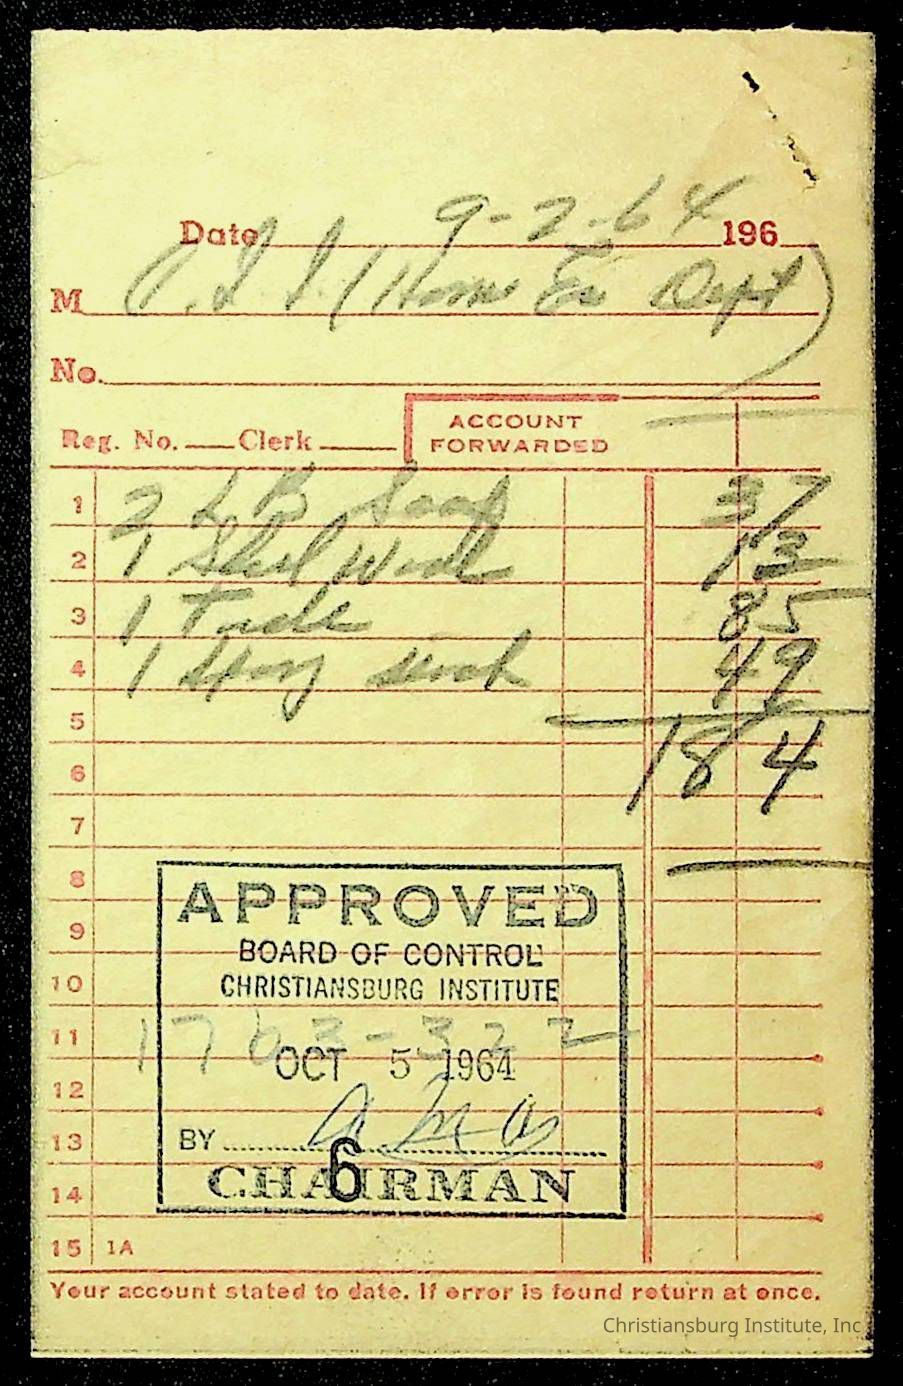 Date 9-2-64 196
M C.I.I. (Home Ec Dept)
No.
Reg. No. Clerk
ACCOUNT
FORWARDED
1 2 LB Soap 37
2 1 Steel Wool 13
3 1 85
4 1 Spray starch 49
5 184
6
7
8
APPROVED
9
BOARD OF CONTROL
10 CHRISTIANSBURG INSTITUTE
11 1703-322
OCT 5 1964
12
13 BY
6
CHAIRMAN
14
15 1A
Your account stated to date. If error is found return at once.
Christiansburg Institute, Inc